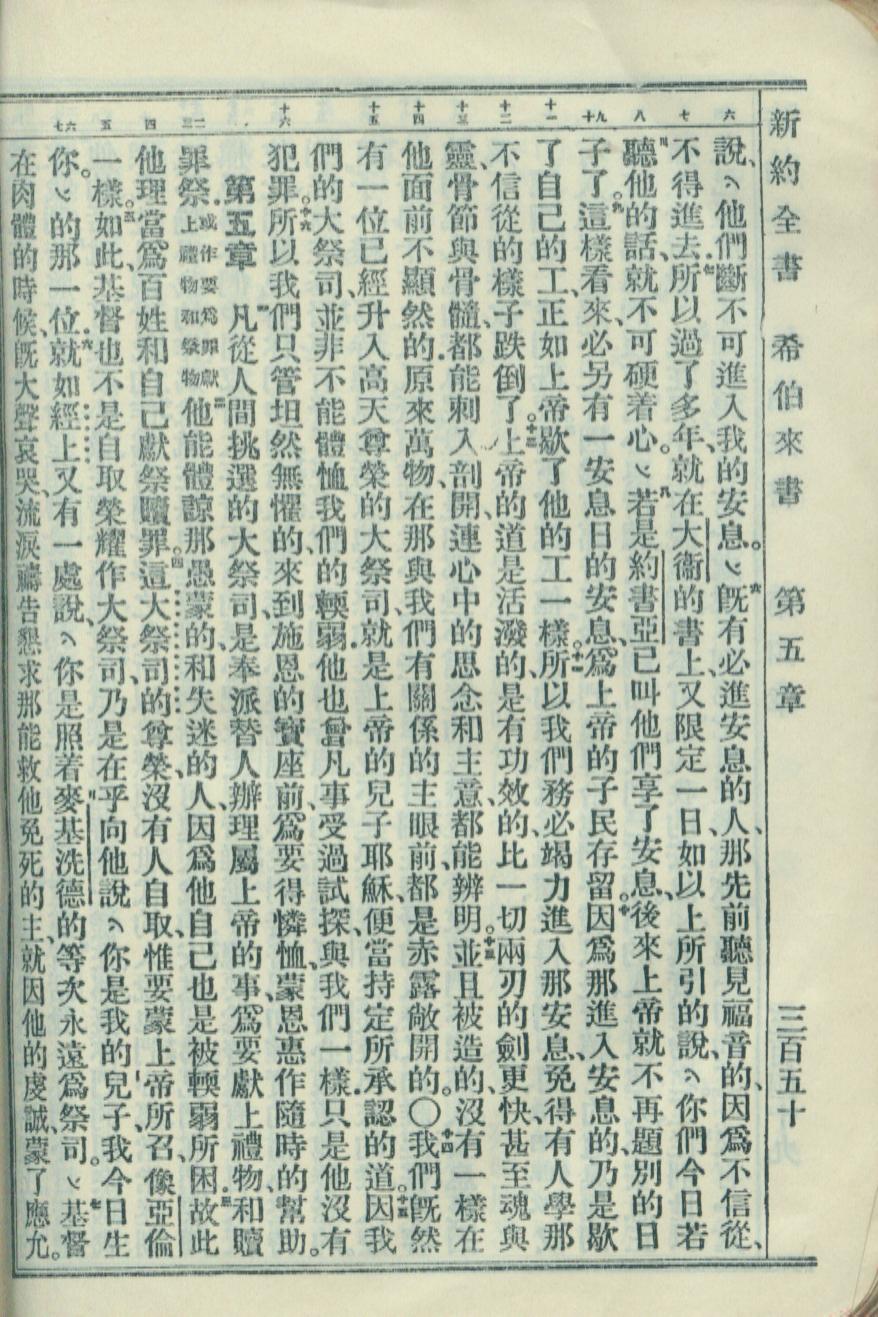 新約全書 希伯來書 第五章 三百五十
六 七 八 九十 十一 十二 十三 十四 十五 十六 一 二三 四 五 六七
說、〽他們斷不可進入我的安息。〽六旣有必進安息的人、那先前聽見福音的、因爲不信從、
不得進去、七所以過了多年、就在大衞的書上、又限定一日、如以上所引的說、〽你們今日若
聽他的話、就不可硬着心。〽八若是約書亞已叫他們享了安息、後來上帝就不再題別的日
子了。九這樣看來、必另有一安息日的安息、爲上帝的子民存留。十因爲那進入安息的、乃是歇
了自己的工、正如上帝歇了他的工一樣。十一所以我們務必竭力進入那安息、免得有人學那
不信從的樣子跌倒了。十二上帝的道是活潑的、是有功效的、比一切兩刃的劍更快、甚至魂與
靈、骨節與骨髓、都能刺入剖開、連心中的思念和主意、都能辨明。十三並且被造的、沒有一樣在
他面前不顯然的、原來萬物、在那與我們有關係的主眼前、都是赤露敞開的。〇十四我們旣然
有一位已經升入高天尊榮的大祭司、就是上帝的兒子耶穌、便當持定所承認的道。十五因我
們的大祭司、並非不能體恤我們的輭弱、他也曾凡事受過試探、與我們一樣、只是他沒有
犯罪。十六所以我們只管坦然無懼的、來到施恩的寶座前、爲要得憐恤、蒙恩惠作隨時的幫助。
第五章 一凡從人間挑選的大祭司、是奉派替人辦理屬上帝的事、爲要獻上禮物、和贖
罪祭、或作要爲罪獻上禮物和祭物二他能體諒那愚蒙的、和失迷的人、因爲他自己也是被輭弱所困、三故此
他理當爲百姓和自己獻祭贖罪。四這大祭司的尊榮、沒有人自取、惟要蒙上帝所召、像亞倫
一樣。五如此、基督也不是自取榮耀作大祭司、乃是在乎向他說、〽你是我的兒子、我今日生
你。〽的那一位、六就如經上又有一處說、〽你是照着麥基洗德的等次永遠爲祭司。〽七基督
在肉體的時候、旣大聲哀哭、流淚禱告懇求那能救他免死的主、就因他的虔誠、蒙了應允。